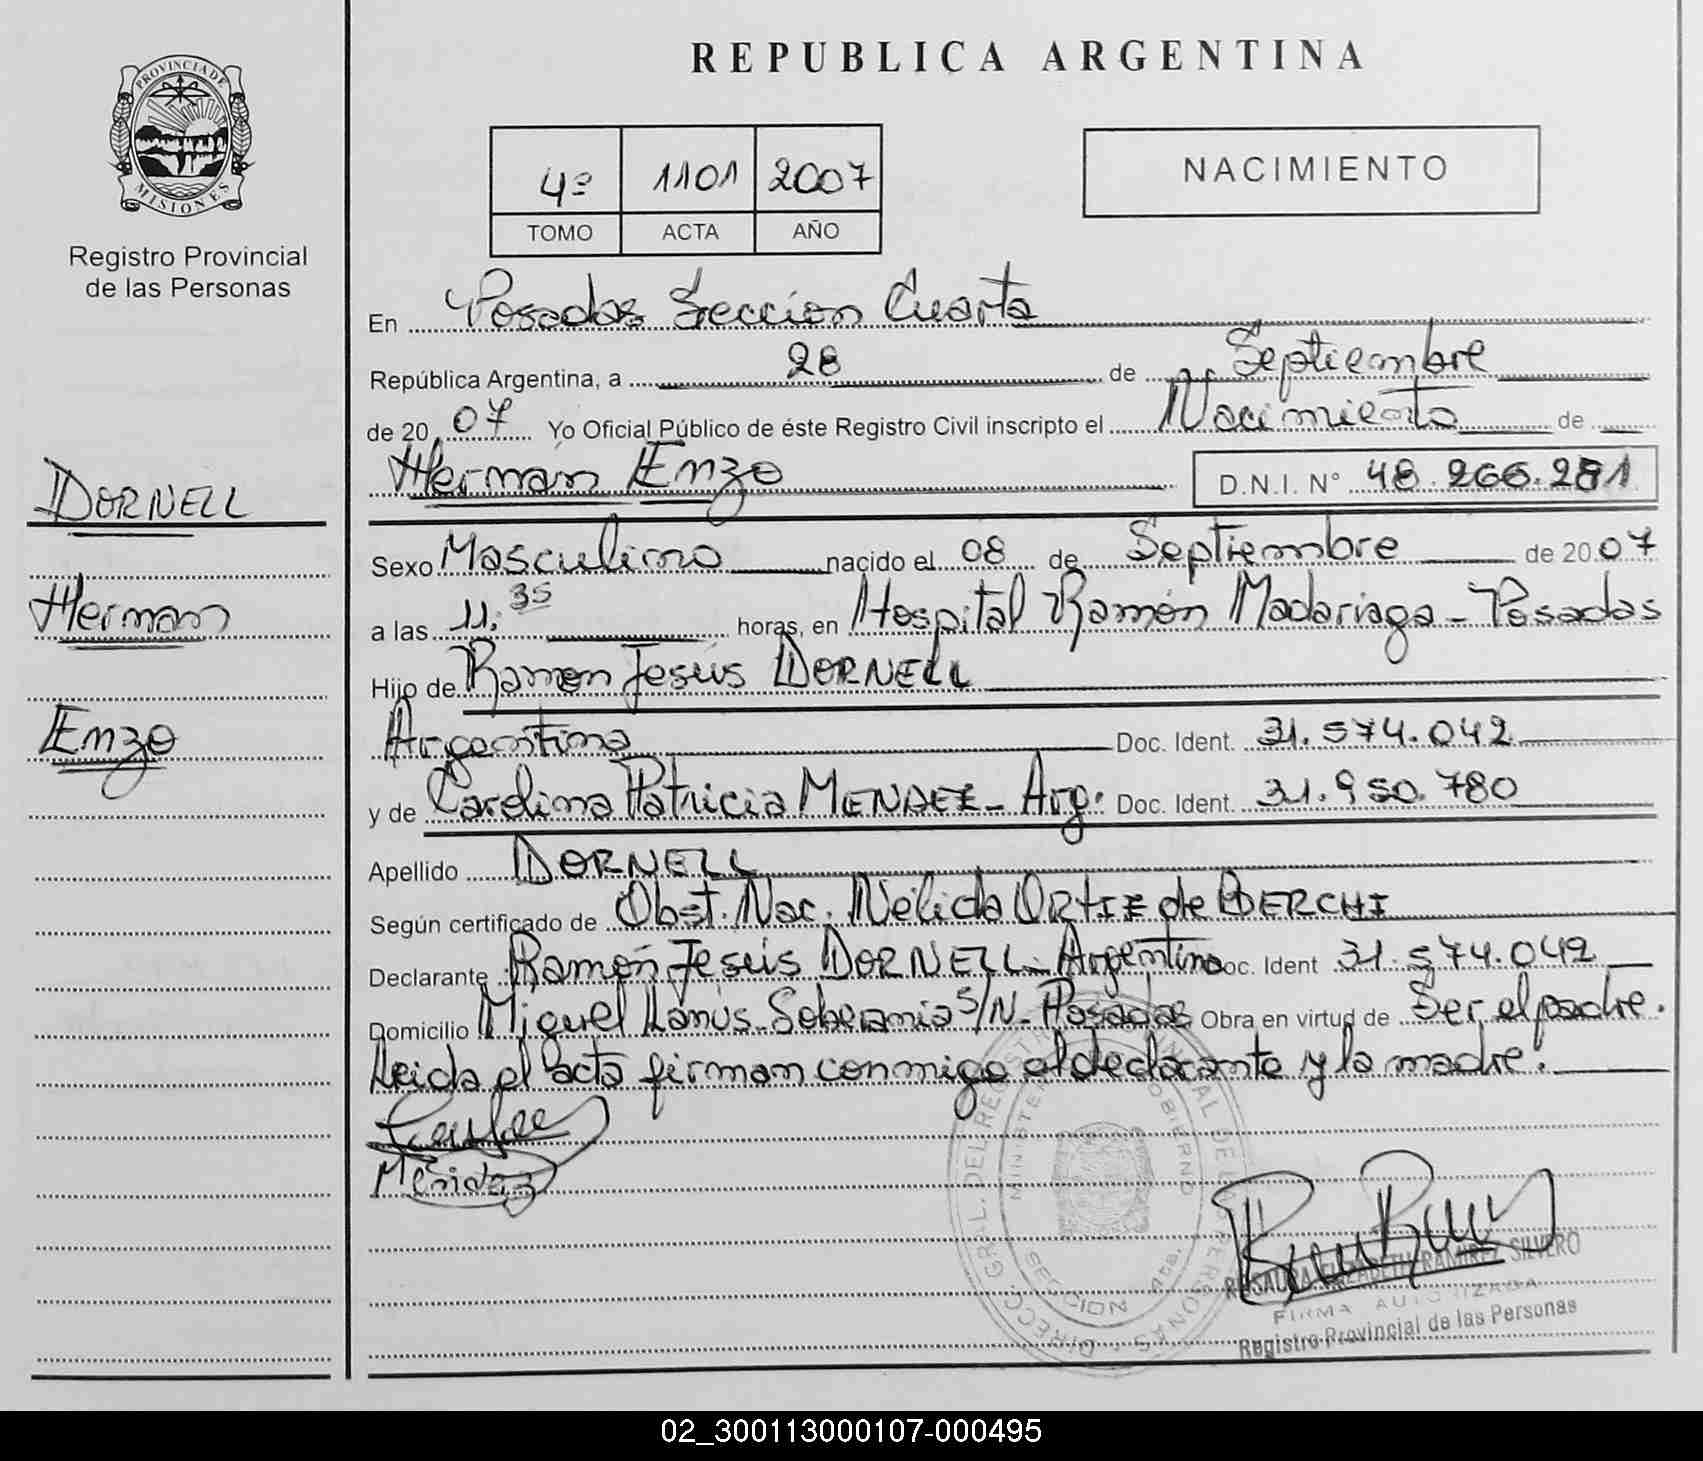 REPUBLICA ARGENTINA
PROVINCIA DE
MISIONES
Registro Provincial
de las Personas
4º 1101 2007
TOMO ACTA AÑO
NACIMIENTO
En Posadas Seccion Cuarta
República Argentina, a 28 de Septiembre
de 2007 Yo Oficial Público de éste Registro Civil inscripto el Nacimiento de
Herman Enzo D.N.I. N° 48.266.281
DORNELL
Herman
Enzo
Sexo Masculino nacido el 08 de Septiembre de 2007
a las 11:35 horas, en Hospital Ramón Madariaga - Posadas
Hijo de Ramon Jesús DORNELL
Argentino Doc. Ident. 31.574.042
y de Carolina Patricia MENDEZ - Arg. Doc. Ident. 31.950.780
Apellido DORNELL
Según certificado de Obst. Nac. Nélida ORTIZ de BERCHI
Declarante Ramón Jesús DORNELL - Argentino Doc. Ident 31.574.042
Domicilio Miguel Lanús - Soberania S/N - Posadas Obra en virtud de Ser el padre.
Leida el acta firman conmigo el declarante y la madre.
Mendez
DIRECC. GRAL. DEL REGISTRO PROVINCIAL DE LAS PERSONAS
MINISTERIO GOBIERNO
SECCION 4ta.
ROSAURA ELIZABETH RAMIREZ SILVERO
FIRMA AUTORIZADA
Registro Provincial de las Personas
02_300113000107-000495